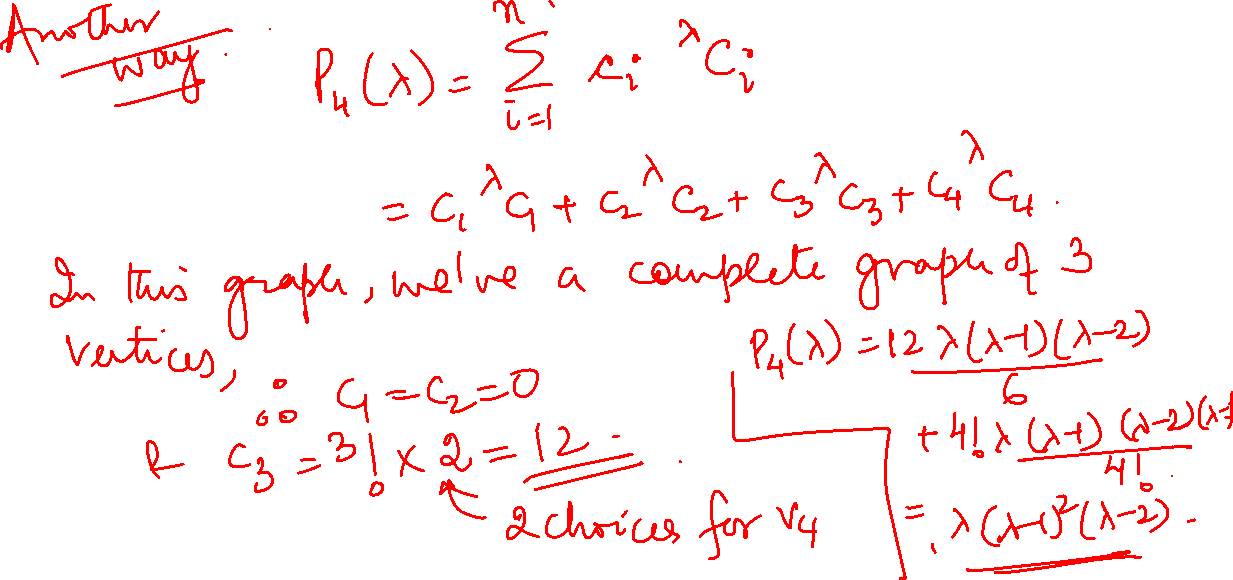 Another way.
P₄(λ) = Σⁿᵢ₌₁ cᵢ ^λCᵢ
= C₁ ^λC₁ + C₂ ^λC₂ + C₃ ^λC₃ + C₄ ^λC₄.
In this graph, we've a complete graph of 3
vertices,
∴ C₁ = C₂ = 0
& C₃ = 3! × 2 = 12.
2 choices for v₄
P₄(λ) = 12 λ(λ-1)(λ-2) / 6
+ 4! λ(λ-1)(λ-2)(λ-3) / 4!
= λ(λ-1)²(λ-2).